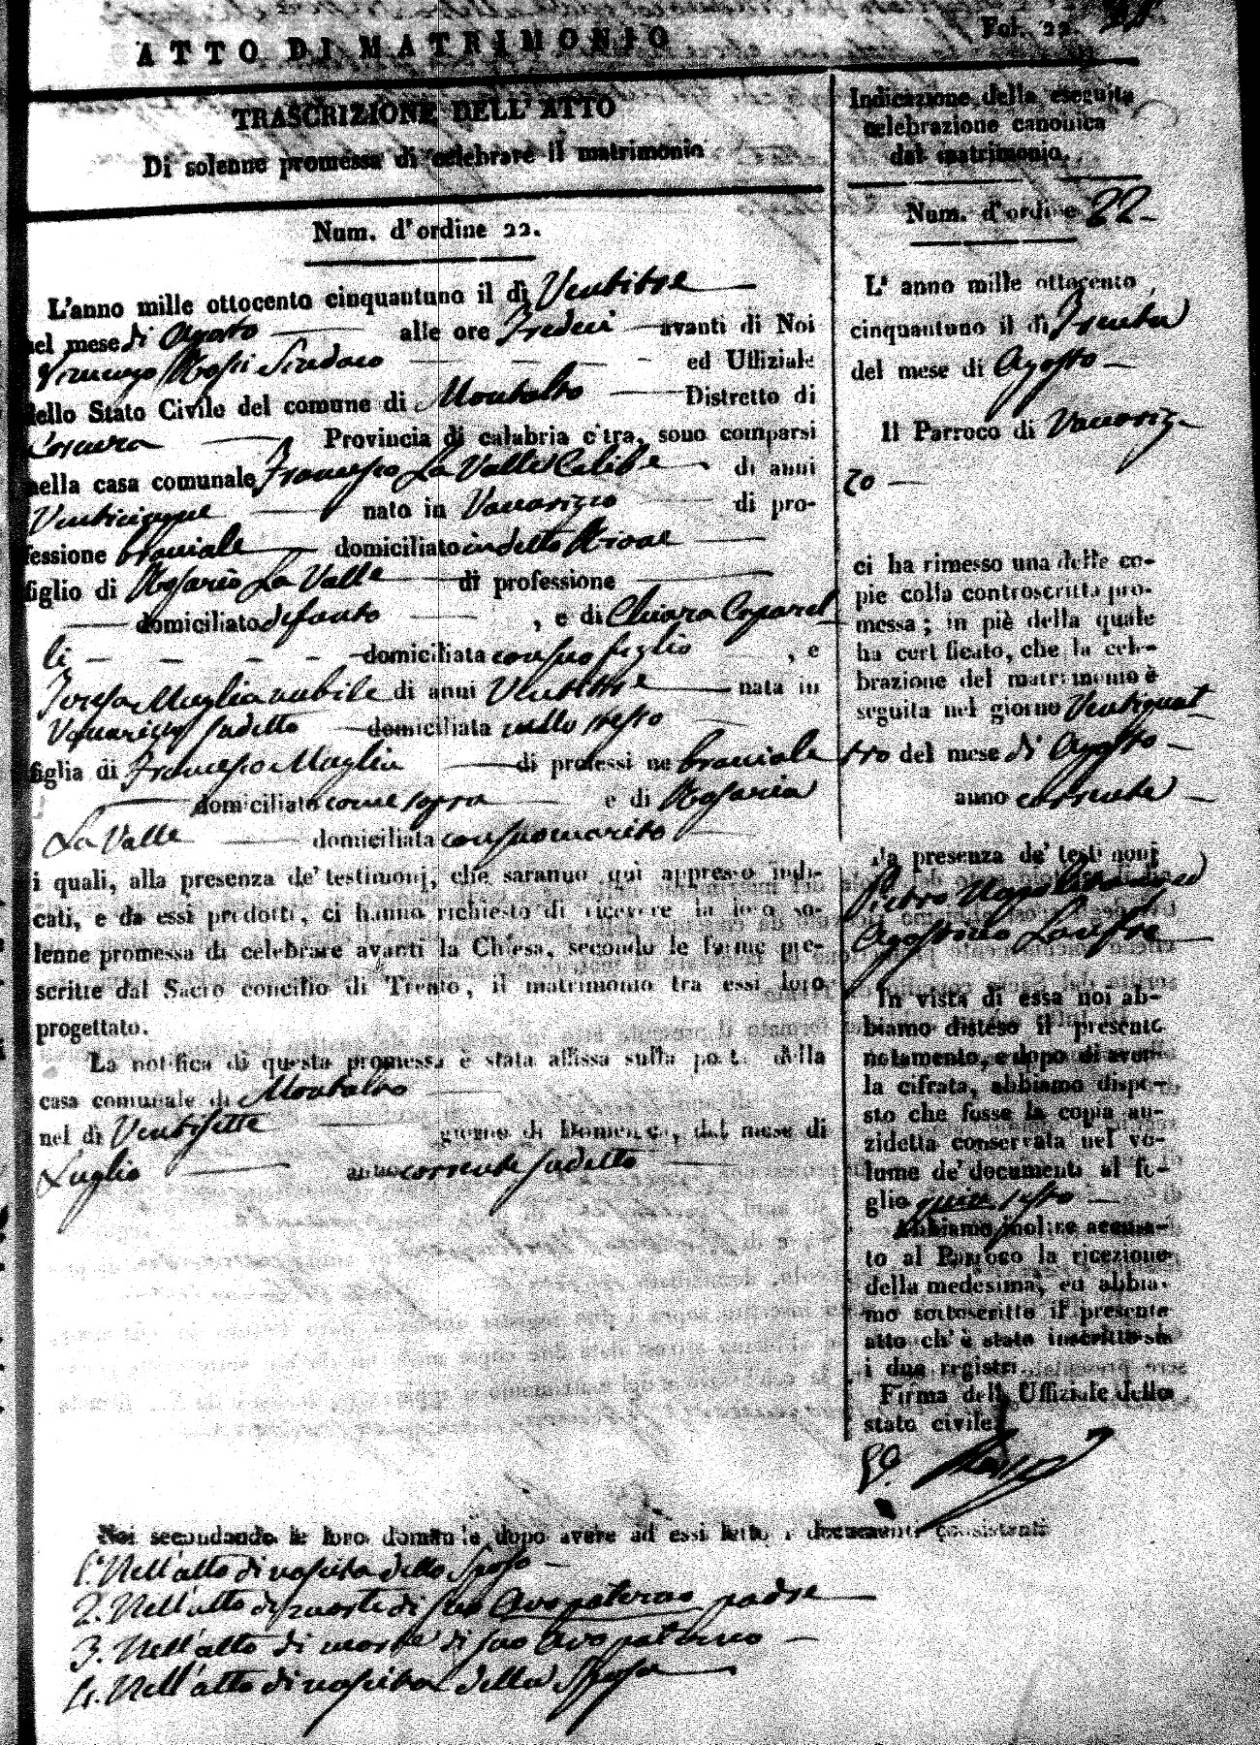 ATTO DI MATRIMONIO
Fol. 22.
TRASCRIZIONE DELL'ATTO
Di solenne promessa di celebrare il matrimonio
Num. d'ordine 22.
L'anno mille ottocento cinquantuno il dì Ventitre
nel mese di Agosto alle ore Tredeci avanti di Noi
Vincenzo Rossi Sindaco ed Uffiziale
dello Stato Civile del comune di Montalto Distretto di
Cosenza Provincia di calabria c'tra, sono comparsi
nella casa comunale Francesco La Valle Celibe di anni
Venticinque nato in Vaccarizzo di pro-
fessione bracciale domiciliato in detto
figlio di Rosario La Valle di professione
domiciliato defunto , e di Chiara
li domiciliata con suo figlio , e
Teresa Muglia nubile di anni Ventitre nata in
Vaccarizzo sudetto domiciliata nello stesso
figlia di Francesco Muglia di professi ne bracciale
domiciliato come sopra e di Rosaria
La Valle domiciliata con suo marito
i quali, alla presenza de' testimonj, che saranno qui appresso indi-
cati, e da essi prodotti, ci hanno richiesto di ricevere la loro so-
lenne promessa di celebrare avanti la Chiesa, secondo le forme pre-
scritte dal Sacro concilio di Trento, il matrimonio tra essi loro
progettato.
La notifica di questa promessa è stata affissa sulla porta della
casa comunale di Montalto
nel dì Ventisette giorno di Domenica, del mese di
Luglio anno corrente sudetto
Indicazione della eseguita
celebrazione canonica
del matrimonio.
Num. d'ordine 22
L' anno mille ottocento
cinquantuno il dì Trenta
del mese di Agosto
Il Parroco di Vaccariz-
zo
ci ha rimesso una delle co-
pie colla controscritta pro-
messa; in piè della quale
ha certificato, che la cele-
brazione del matrimonio è
seguita nel giorno Ventiquat
tro del mese di Agosto
anno corrente
la presenza de' testimonj
Pietro Napolitano
Agostino
In vista di essa noi ab-
biamo disteso il presente
notamento, e dopo di aver-
la cifrata, abbiamo dispo-
sto che fosse la copia an-
zidetta conservata nel vo-
lume de' documenti al fo-
glio
Abbiamo inoltre accusa-
to al Parroco la ricezione
della medesima, ed abbia-
mo sottoscritto il presente
atto ch'è stato inscritto su
i due registri.
Firma dell Uffiziale dello
stato civile
Rossi
Noi secondando le loro domande dopo avere ad essi letto i documenti consistenti
1. Nell'atto di nascita dello Sposo
2. Nell'atto di morte di suo Avo paterno padre
3. Nell'atto di morte di suo Avo paterno
4. Nell'atto di nascita della Sposa